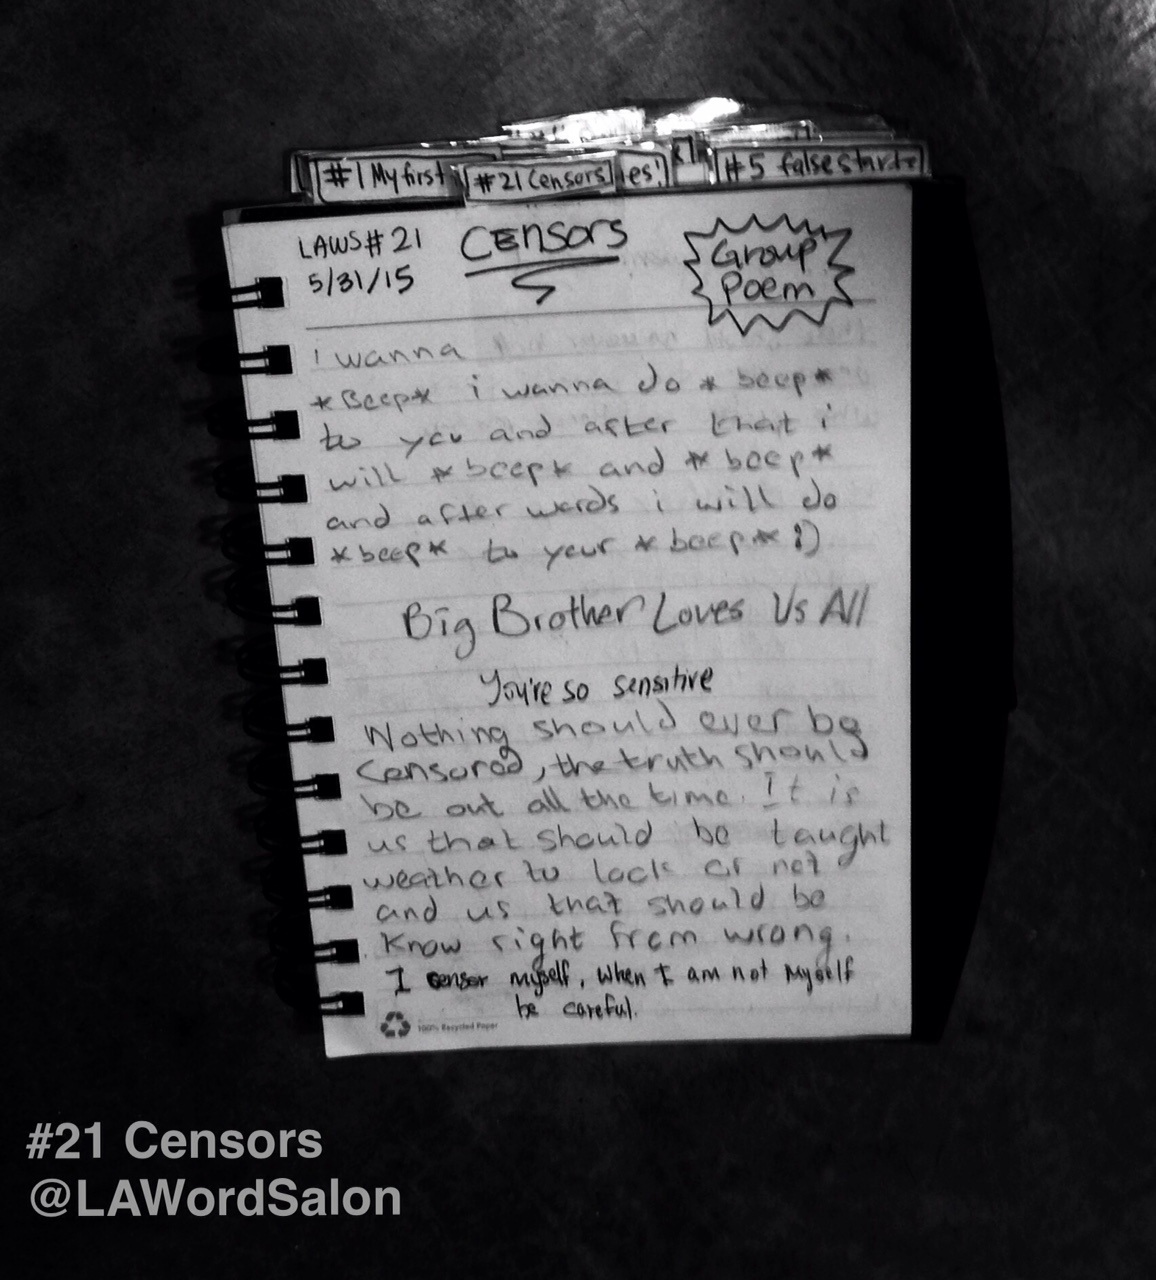 #1 My first
#21 Censors
es!
#5 false starts
LAWS# 21
5/31/15
Censors
Group
Poem
i wanna
*Beep* i wanna do *beep*
to you and after that i
will *beep* and *beep*
and after words i will do
*beep* to your *beep* :)
Big Brother Loves Us All
You're so sensitive
Nothing should ever be
Censored, the truth should
be out all the time. It is
us that should be taught
weather to look or not
and us that should be
Know right from wrong.
I censor myself, when I am not myself
be careful.
100% Recycled Paper
#21 Censors
@LAWordSalon